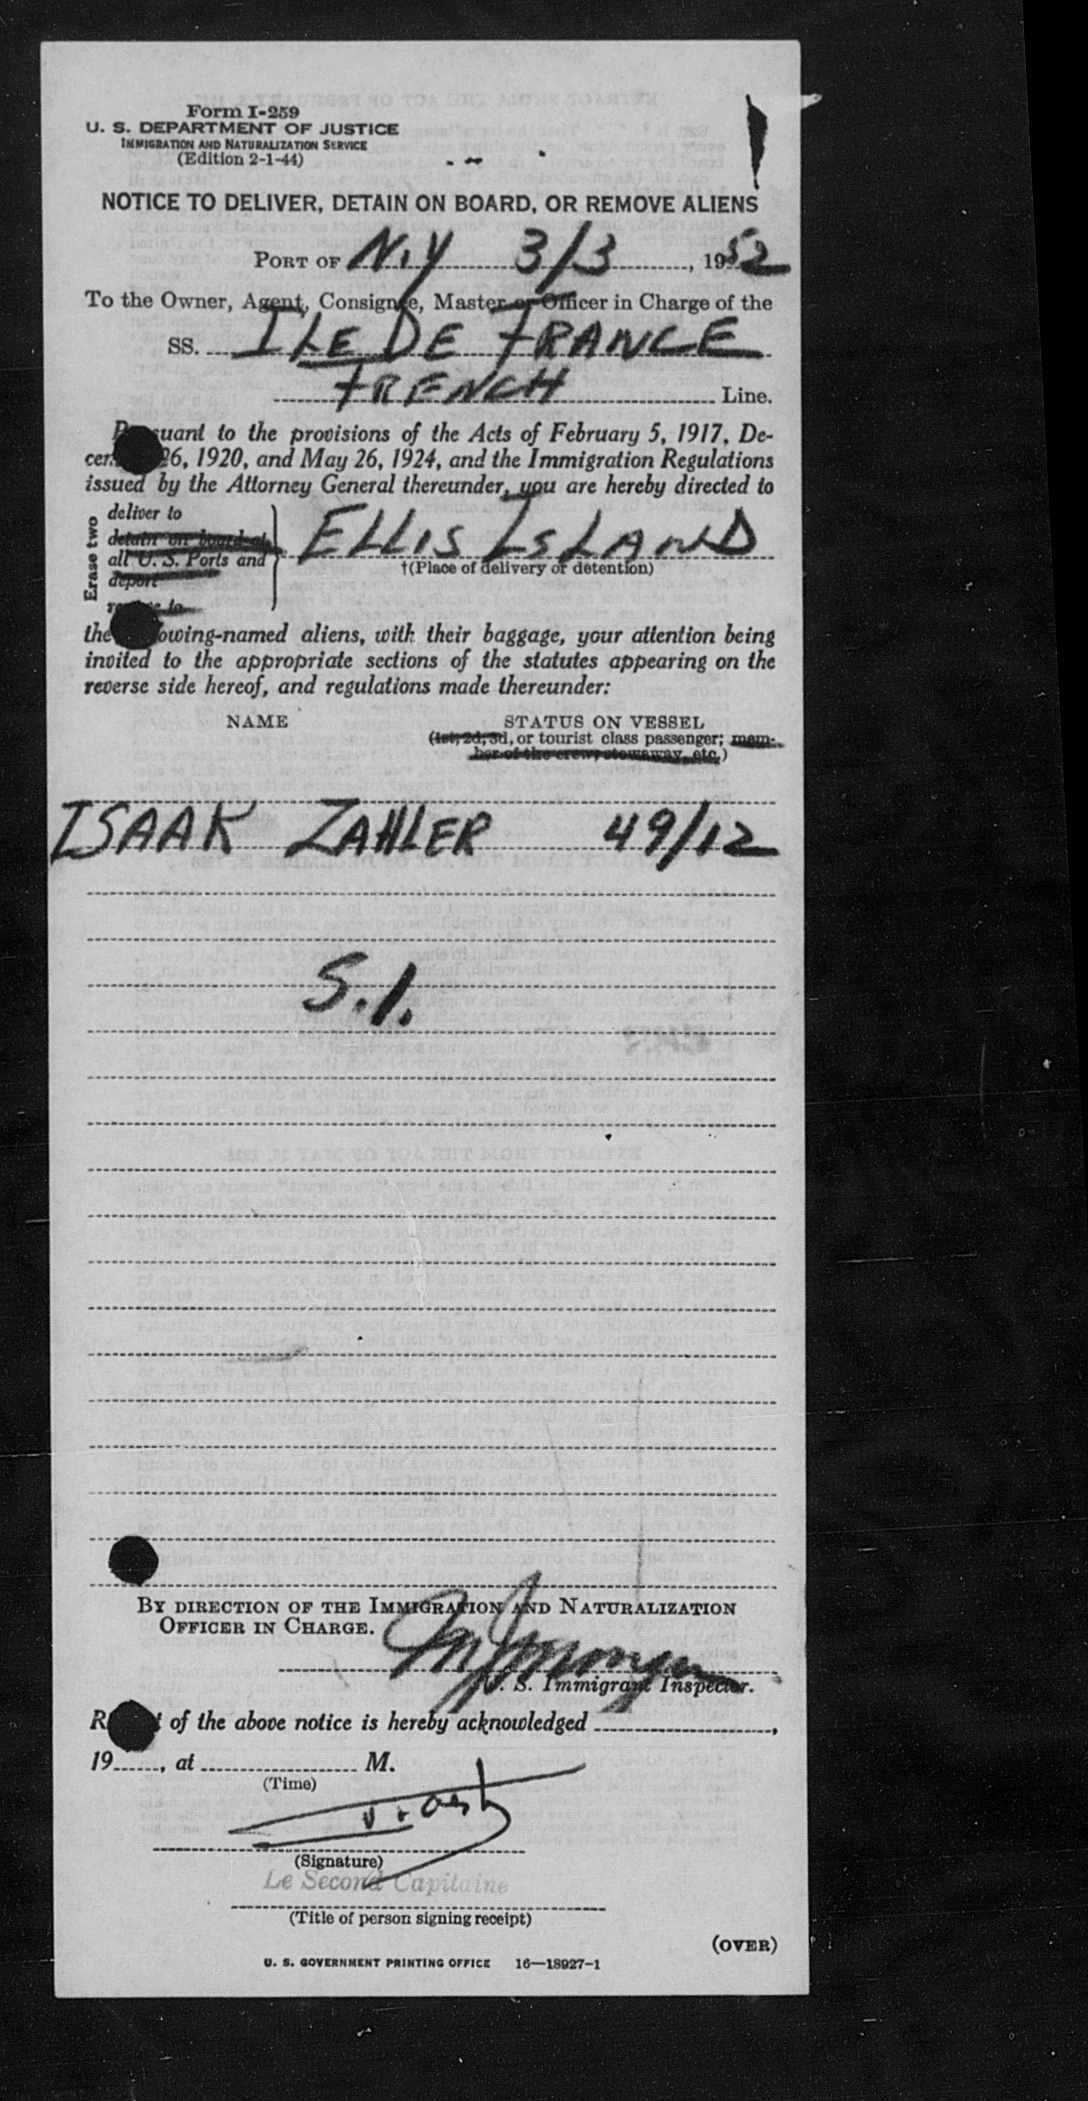 Form I-259
U. S. DEPARTMENT OF JUSTICE
IMMIGRATION AND NATURALIZATION SERVICE
(Edition 2-1-44)
NOTICE TO DELIVER, DETAIN ON BOARD, OR REMOVE ALIENS
PORT OF N.Y 3/3, 1952
To the Owner, Agent, Consignee, Master or Officer in Charge of the
SS. ILE DE FRANCE
FRENCH Line.
Pursuant to the provisions of the Acts of February 5, 1917, De-
cember 26, 1920, and May 26, 1924, and the Immigration Regulations
issued by the Attorney General thereunder, you are hereby directed to
Erase two
deliver to
detain on board at
all U. S. Ports and
deport
remove to
ELLIS ISLAND
†(Place of delivery or detention)
the following-named aliens, with their baggage, your attention being
invited to the appropriate sections of the statutes appearing on the
reverse side hereof, and regulations made thereunder:
NAME STATUS ON VESSEL
(1st, 2d, 3d, or tourist class passenger; mem-
ber of the crew; stowaway, etc.)
ISAAK ZAHLER 49/12
S.I.
BY DIRECTION OF THE IMMIGRATION AND NATURALIZATION
OFFICER IN CHARGE.
U. S. Immigrant Inspector.
Receipt of the above notice is hereby acknowledged ,
19, at M.
(Time)
(Signature)
Le Second Capitaine
(Title of person signing receipt)
(OVER)
U. S. GOVERNMENT PRINTING OFFICE 16—18927-1